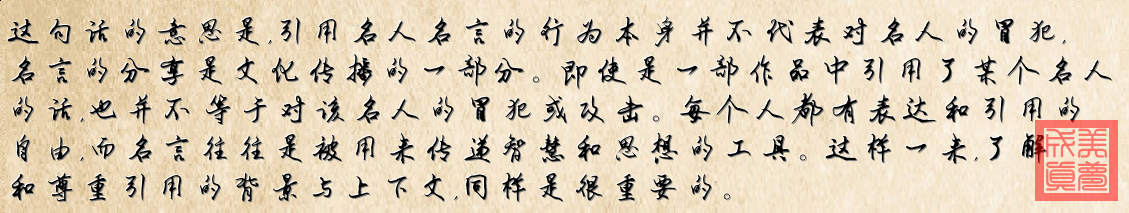 这句话的意思是,引用名人名言的行为本身并不代表对名人的冒犯,
名言的分享是文化传播的一部分。即使是一部作品中引用了某个名人
的话,也并不等于对该名人的冒犯或攻击。每个人都有表达和引用的
自由,而名言往往是被用来传递智慧和思想的工具。这样一来,了解
和尊重引用的背景与上下文,同样是很重要的。
美梦成真